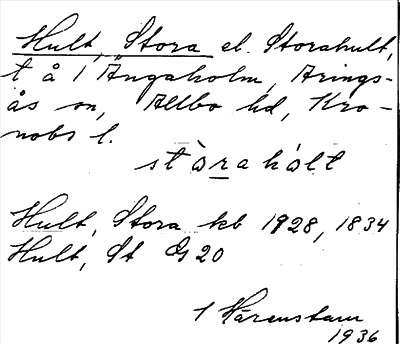 Hult, Stora el. Storahult,
t å 1 Ängaholm, Arings-
ås sn, Allbo hd, Kro-
nobs l.
stòrahòlt
Hult, Stora kb 1928, 1834
Hult, St G 20
1 Härenstam
1936